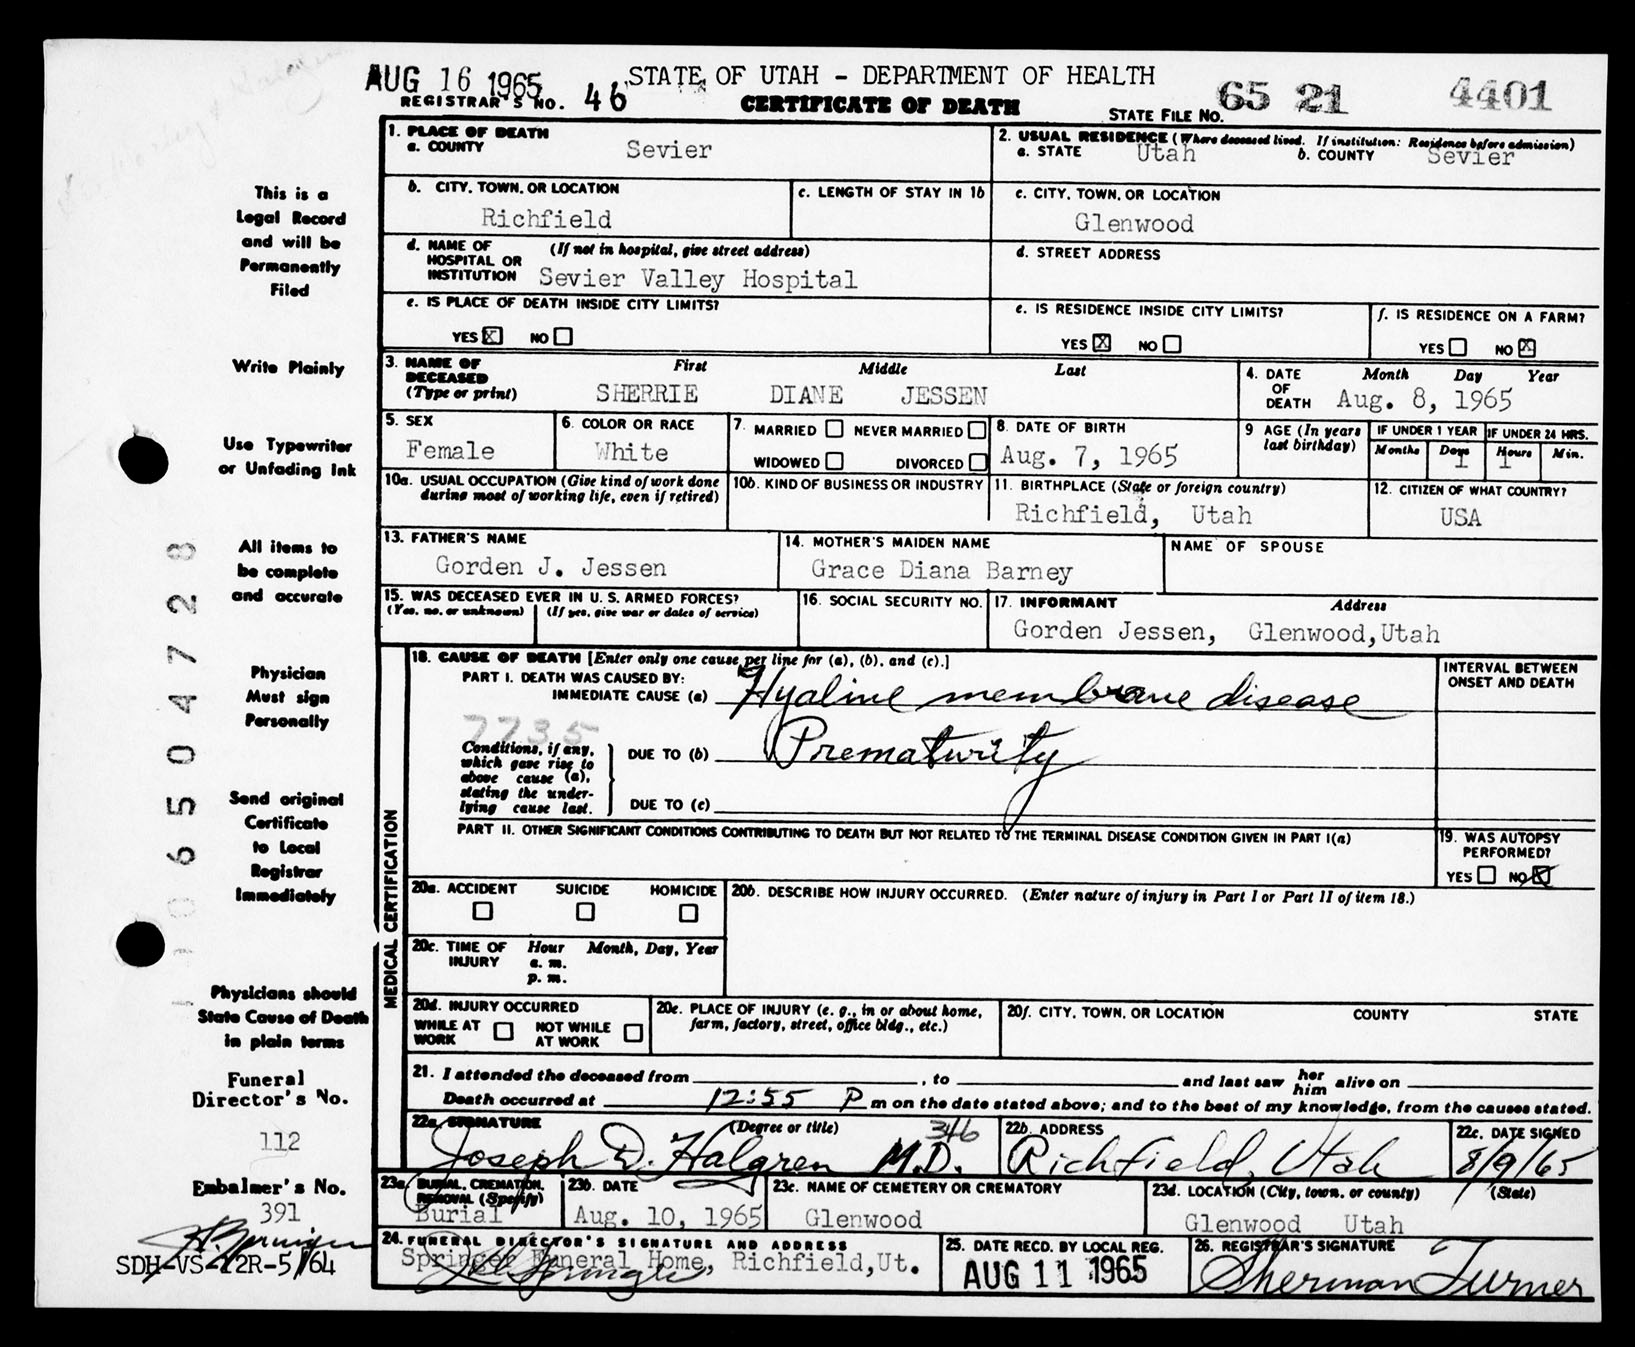 AUG 16 1965 STATE OF UTAH - DEPARTMENT OF HEALTH
REGISTRAR'S NO. 46 CERTIFICATE OF DEATH STATE FILE NO. 65 21 4401
This is a
Legal Record
and will be
Permanently
Filed
Write Plainly
Use Typewriter
or Unfading Ink
All items to
be complete
and accurate
Physician
Must sign
Personally
Send original
Certificate
to Local
Registrar
Immediately
Physicians should
State Cause of Death
in plain terms
Funeral
Director's No.
112
Embalmer's No.
391
SDH-VS-12R-5/64
06504728
1. PLACE OF DEATH
a. COUNTY Sevier
2. USUAL RESIDENCE (Where deceased lived. If institution: Residence before admission)
a. STATE Utah b. COUNTY Sevier
b. CITY, TOWN, OR LOCATION
Richfield
c. LENGTH OF STAY IN 1b
c. CITY, TOWN, OR LOCATION
Glenwood
d. NAME OF (If not in hospital, give street address)
HOSPITAL OR
INSTITUTION Sevier Valley Hospital
d. STREET ADDRESS
e. IS PLACE OF DEATH INSIDE CITY LIMITS?
YES X NO
e. IS RESIDENCE INSIDE CITY LIMITS?
YES X NO
f. IS RESIDENCE ON A FARM?
YES NO X
3. NAME OF First Middle Last
DECEASED
(Type or print) SHERRIE DIANE JESSEN
4. DATE Month Day Year
OF
DEATH Aug. 8, 1965
5. SEX
Female
6. COLOR OR RACE
White
7. MARRIED NEVER MARRIED
WIDOWED DIVORCED
8. DATE OF BIRTH
Aug. 7, 1965
9 AGE (In years
last birthday)
IF UNDER 1 YEAR IF UNDER 24 HRS.
Months Days Hours Min.
1 1
10a. USUAL OCCUPATION (Give kind of work done
during most of working life, even if retired)
10b. KIND OF BUSINESS OR INDUSTRY
11. BIRTHPLACE (State or foreign country)
Richfield, Utah
12. CITIZEN OF WHAT COUNTRY?
USA
13. FATHER'S NAME
Gorden J. Jessen
14. MOTHER'S MAIDEN NAME
Grace Diana Barney
NAME OF SPOUSE
15. WAS DECEASED EVER IN U. S. ARMED FORCES?
(Yes, no, or unknown) (If yes, give war or dates of service)
16. SOCIAL SECURITY NO.
17. INFORMANT Address
Gorden Jessen, Glenwood,Utah
MEDICAL CERTIFICATION
18. CAUSE OF DEATH [Enter only one cause per line for (a), (b), and (c).]
PART I. DEATH WAS CAUSED BY:
IMMEDIATE CAUSE (a) Hyaline membrane disease
INTERVAL BETWEEN
ONSET AND DEATH
7735
Conditions, if any,
which gave rise to
above cause (a),
stating the under-
lying cause last.
DUE TO (b) Prematurity
DUE TO (c)
PART II. OTHER SIGNIFICANT CONDITIONS CONTRIBUTING TO DEATH BUT NOT RELATED TO THE TERMINAL DISEASE CONDITION GIVEN IN PART I(a)
19. WAS AUTOPSY
PERFORMED?
YES NO X
20a. ACCIDENT SUICIDE HOMICIDE
20b. DESCRIBE HOW INJURY OCCURRED. (Enter nature of injury in Part I or Part II of item 18.)
20c. TIME OF Hour Month, Day, Year
INJURY a. m.
p. m.
20d. INJURY OCCURRED
WHILE AT NOT WHILE
WORK AT WORK
20e. PLACE OF INJURY (e. g., in or about home,
farm, factory, street, office bldg., etc.)
20f. CITY, TOWN, OR LOCATION COUNTY STATE
21. I attended the deceased from , to and last saw her him alive on
Death occurred at 12:55 P m on the date stated above; and to the best of my knowledge, from the causes stated.
22a. SIGNATURE (Degree or title) 346
Joseph D. Halgren M.D.
22b. ADDRESS
Richfield, Utah
22c. DATE SIGNED
8/9/65
23a. BURIAL, CREMATION,
REMOVAL (Specify)
Burial
23b. DATE
Aug. 10, 1965
23c. NAME OF CEMETERY OR CREMATORY
Glenwood
23d. LOCATION (City, town, or county) (State)
Glenwood Utah
24. FUNERAL DIRECTOR'S SIGNATURE AND ADDRESS
Springer Funeral Home, Richfield,Ut.
25. DATE RECD. BY LOCAL REG.
AUG 11 1965
26. REGISTRAR'S SIGNATURE
Sherman Turner